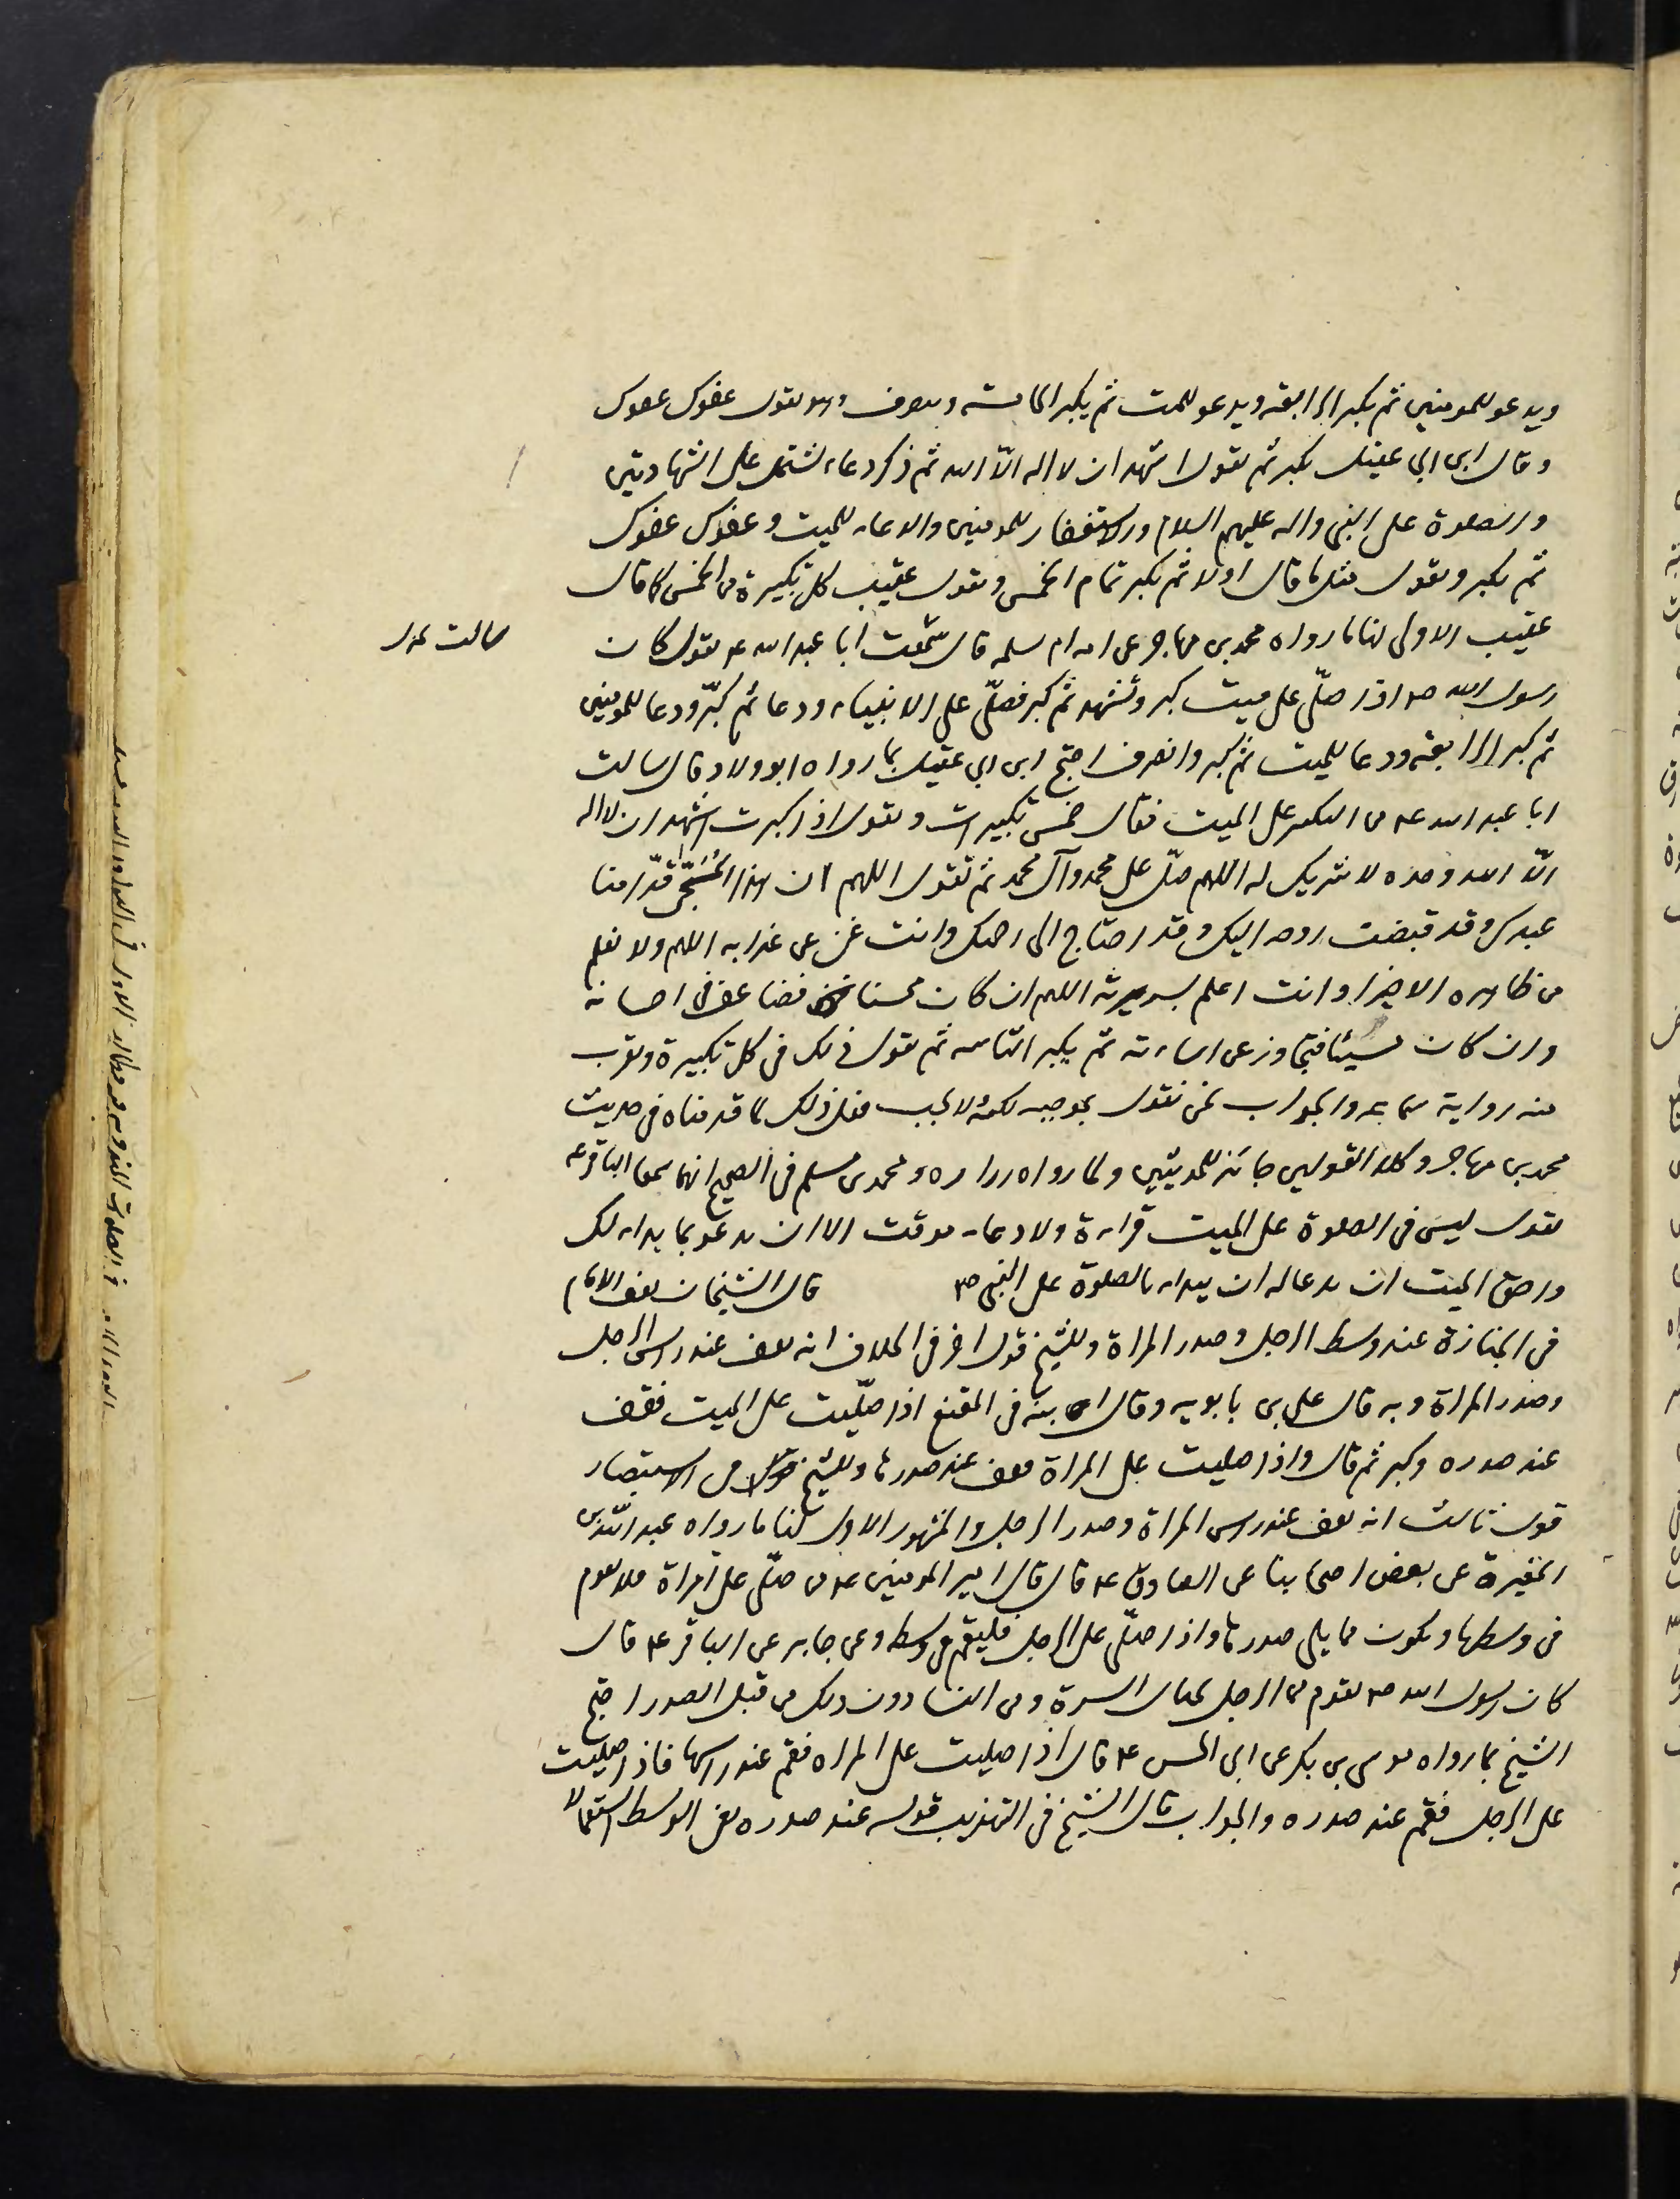 ويدعو للمومنين ثم يكبر الرابعة ويدعو للمت ثم يكبر الخامسة وينصرف وهو يقول عفوك عفوك
وقال ابن ابي عقيل يكبر ثم يقول اشهد ان لا اله الّا الله ثم ذكر دعاء يشتمل على الشهادتين
والصلوة على النبى واله عليهم السلام والاستغفار للمومنين والدعاء للميت وعفوك عفوك
ثم يكبر ويقول مثل ما قال اولا ثم يكبر تمام الخمس ويقول عقيب كل تكبيرة من الخمس كما قال
عقيب الاولى لنا ما رواه محمد بن مهاجر عن امه ام سلمه قال سمعت ابا عبد الله ع يقول كان
رسول الله ص اذا صلّى على ميت كبر وتشهد ثم كبر فصلّى على الانبياء ودعا ثم كبّر ودعا للمومنين
ثم كبر الرابعة ودعا للميت ثم كبر وانصرف احتج ابن ابي عقيل بما رواه ابو ولاد قال سالت
ابا عبد الله ع عن التكبير على الميت فقال خمس تكبيرات وتقول اذا كبرت اشهد ان لا اله
الّا الله وحده لا شريك له اللهم صلّ على محمد وآل محمد ثم تقول اللهم ان هذا المُسَجّى قدّامنا
عبدك وقد قبضت روحه اليك وقد احتاج الى رحمتك وانت غنى عن عذابه اللهم ولا نعلم
من ظاهره الا خيرا وانت اعلم بسريرته اللهم ان كان محسنا فضاعف فى احسانه
وان كان مسيئا فتجاوز عن اساءته ثم يكبر الثانية ثم تقول ذلك فى كل تكبيرة ويقرب
منه رواية سماعه والجواب نحن نقول بموجبه لكنه لا يجب فعل ذلك لما قدمناه فى حديث
محمد بن مهاجر وكلا القولين جائز للحديثين ولما رواه زراره ومحمد بن مسلم فى الصحيح انهما سمعا الباقر ع
يقول ليس فى الصلوة على الميت قراءة ولا دعاء موقت الا ان تدعو بما بدا لك
واحق الميت ان يدعا له ان يبداء بالصلوة على النبى ص قال الشيخان يقف الامام
فى الجنازة عند وسط الرجل وصدر المراة وللشيخ قول اخر فى الخلاف انه يقف عند راس الرجل
وصدر المراة وبه قال على بن بابويه وقال ابنه فى المقنع اذا صلّيت على الميت فقف
عند صدره وكبر ثم قال واذا صليت على المراة فقف عند صدرها وللشيخ فى الاستبصار
قول ثالث انه يقف عند راس المراة وصدر الرجل والمشهور الاول لنا ما رواه عبد الله بن
المغيرة عن بعض اصحابنا عن الصادق ع قال قال امير المومنين ع من صلّى على امراة فلا يقوم
فى وسطها ويكون مما يلى صدرها واذا صلّى على الرجل فليقم فى وسطه وعن جابر عن الباقر ع قال
كان رسول الله ص يقوم من الرجل بحيال السرة ومن النسا دون ذلك من قبل الصدر احتج
الشيخ بما رواه موسى بن بكر عن ابى الحسن ع قال اذا صليت على المراه فقم عند راسها فاذا صليت
على الرجل فقم عند صدره والجواب قال الشيخ فى التهذيب قوله عند صدره يعنى الوسط استعمالا